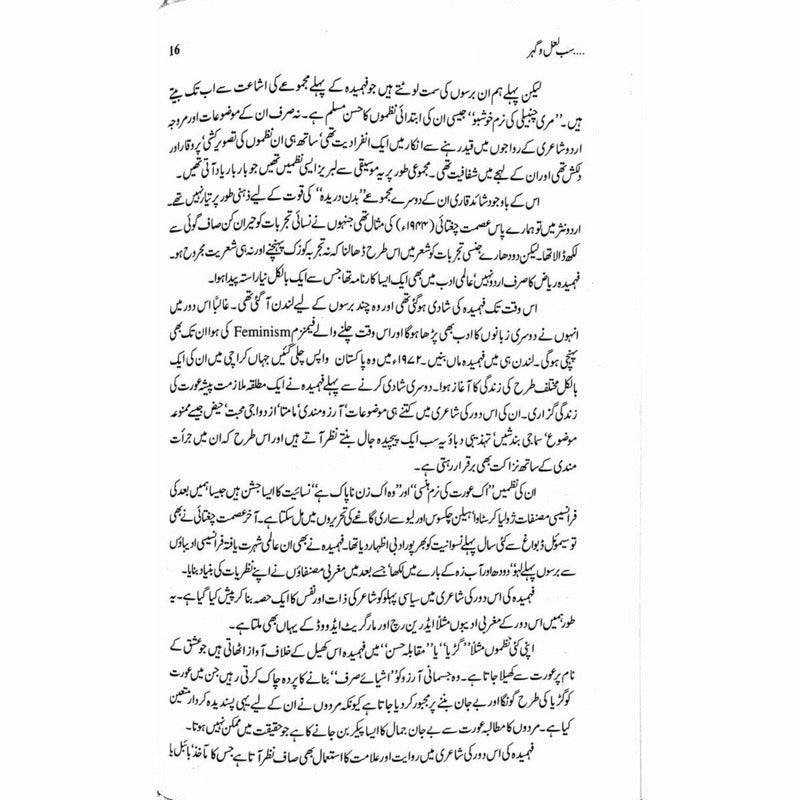 ....سب لعل و گہر
16
لیکن پہلے ہم ان برسوں کی سمت لوٹتے ہیں جو فہمیدہ کے پہلے مجموعے کی اشاعت سے اب تک بیتے
ہیں۔ ”مری چنبیلی کی نرم خوشبو“ جیسی ان کی ابتدائی نظموں کا حسن مسلم ہے۔ نہ صرف ان کے موضوعات اور مروجہ
اردو شاعری کے رواجوں میں قید رہنے سے انکار میں ایک انفرادیت تھی‘ ساتھ ہی ان نظموں کی تصویر کشی‘ پروقار اور
دلکش تھی اور ان کے لہجے میں شفافیت تھی۔ مجموعی طور پر یہ موسیقی سے لبریز ایسی نظمیں تھیں جو بار بار یاد آتی تھیں۔
اس کے باوجود شائد قاری ان کے دوسرے مجموعے ”بدن دریدہ“ کی قوت کے لیے ذہنی طور پر تیار نہیں تھے۔
اردو نثر میں تو ہمارے پاس عصمت چغتائی (۱۹۴۴ء) کی مثال تھی جنہوں نے نسائی تجربات کو حیران کن صاف گوئی سے
لکھ ڈالا تھا۔ لیکن دو دھارے جنسی تجربات کو شعر میں اس طرح ڈھالنا کہ نہ تجربہ کو زک پہنچے اور نہ ہی شعریت مجروح ہو۔
فہمیدہ ریاض کا صرف اردو نہیں‘ عالمی ادب میں بھی ایک ایسا کارنامہ تھا جس سے ایک بالکل نیا راستہ پیدا ہوا۔
اس وقت تک فہمیدہ کی شادی ہو گئی تھی اور وہ چند برسوں کے لیے لندن آ گئی تھی۔ غالباً اس دور میں
انہوں نے دوسری زبانوں کا ادب بھی پڑھا ہو گا اور اس وقت چلنے والے فیمنزم Feminism کی ہوا ان تک بھی
پہنچی ہو گی۔ لندن ہی میں فہمیدہ ماں بنیں۔ ۱۹۷۲ء میں وہ پاکستان واپس چلی گئیں جہاں کراچی میں ان کی ایک
بالکل مختلف طرح کی زندگی کا آغاز ہوا۔ دوسری شادی کرنے سے پہلے فہمیدہ نے ایک مطلقہ ملازمت پیشہ عورت کی
زندگی گزاری۔ ان کی اس دور کی شاعری میں کتنے ہی موضوعات‘ آرزو مندی‘ مامتا‘ ازدواجی محبت‘ حیض جیسے ممنوعہ
موضوع‘ سماجی بندشیں‘ تہذیبی دباؤ یہ سب ایک پیچیدہ جال بنتے نظر آتے ہیں اور اس طرح کہ ان میں جرأت
مندی کے ساتھ نزاکت بھی برقرار رہتی ہے۔
ان کی نظمیں ”اک عورت کی نرم ہنسی“ اور ”وہ اک زن ناپاک ہے“ نسائیت کا ایسا جشن ہیں جیسا ہمیں بعد کی
فرانسیسی مصنفات ژولیا کرسٹاوا‘ ہیلن چکسوس اور لیوسے اری گاغے کی تحریروں میں مل سکتا ہے۔ آخر عصمت چغتائی نے بھی
تو سیموئل ڈبواغ سے کئی سال پہلے نسوانیت کو بھرپور ادبی اظہار دیا تھا۔ فہمیدہ نے بھی ان عالمی شہرت یافتہ فرانسیسی ادیباؤں
سے برسوں پہلے لہو‘ ”دودھ اور آب زہ کے بارے میں لکھا‘ جسے بعد میں مغربی مصنفاؤں نے اپنے نظریات کی بنیاد بنایا۔
فہمیدہ کی اس دور کی شاعری میں سیاسی پہلو کو شاعر کی ذات اور نفس کا ایک حصہ بنا کر پیش کیا گیا ہے۔ یہ
طور ہمیں اس دور کے مغربی ادیبوں مثلاً ایڈرین رچ اور مارگریٹ ایڈووڈ کے یہاں بھی ملتا ہے۔
اپنی کئی نظموں مثلاً ”گڑیا“ یا ”مقابلہ حسن“ میں فہمیدہ اس کھیل کے خلاف آواز اٹھاتی ہیں جو عشق کے
نام پر عورت سے کھیلا جاتا ہے۔ وہ جسمانی آرزو کو ”اشیائے صرف“ بنانے کا پردہ چاک کرتی رہیں جن میں عورت
کو گڑیا کی طرح گونگا اور بے جان بننے پر مجبور کر دیا جاتا ہے کیونکہ مردوں نے ان کے لیے یہی پسندیدہ کردار متعین
کیا ہے۔ مردوں کا مطالبہ عورت سے بے جان جمال کا ایسا پیکر بن جانے کا ہے جو حقیقت میں ممکن نہیں ہوتا۔
فہمیدہ کی اس دور کی شاعری میں روایت اور علامت کا استعمال بھی صاف نظر آتا ہے جس کا مآخذ‘ بائبل یا